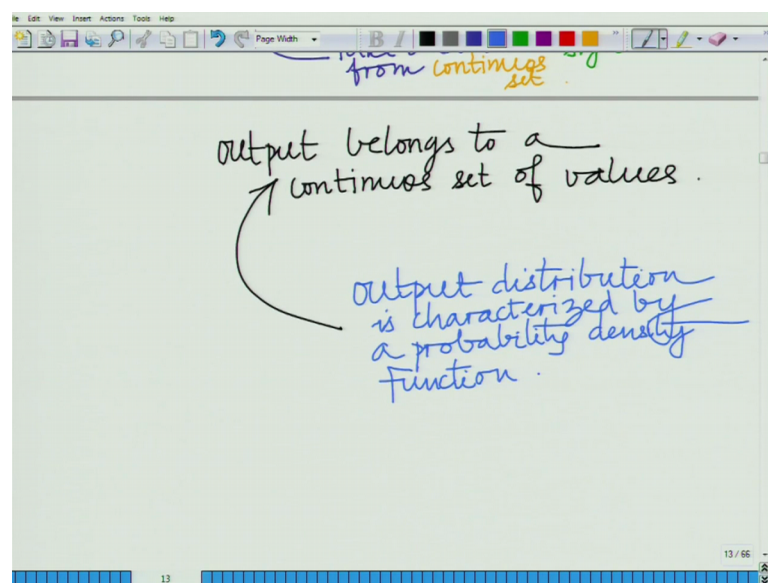 File Edit View Insert Actions Tools Help
Page Width
B I
from continuos
set.
output belongs to a
continuos set of values.
output distribution
is characterized by
a probability density
Function.
13 / 66
13